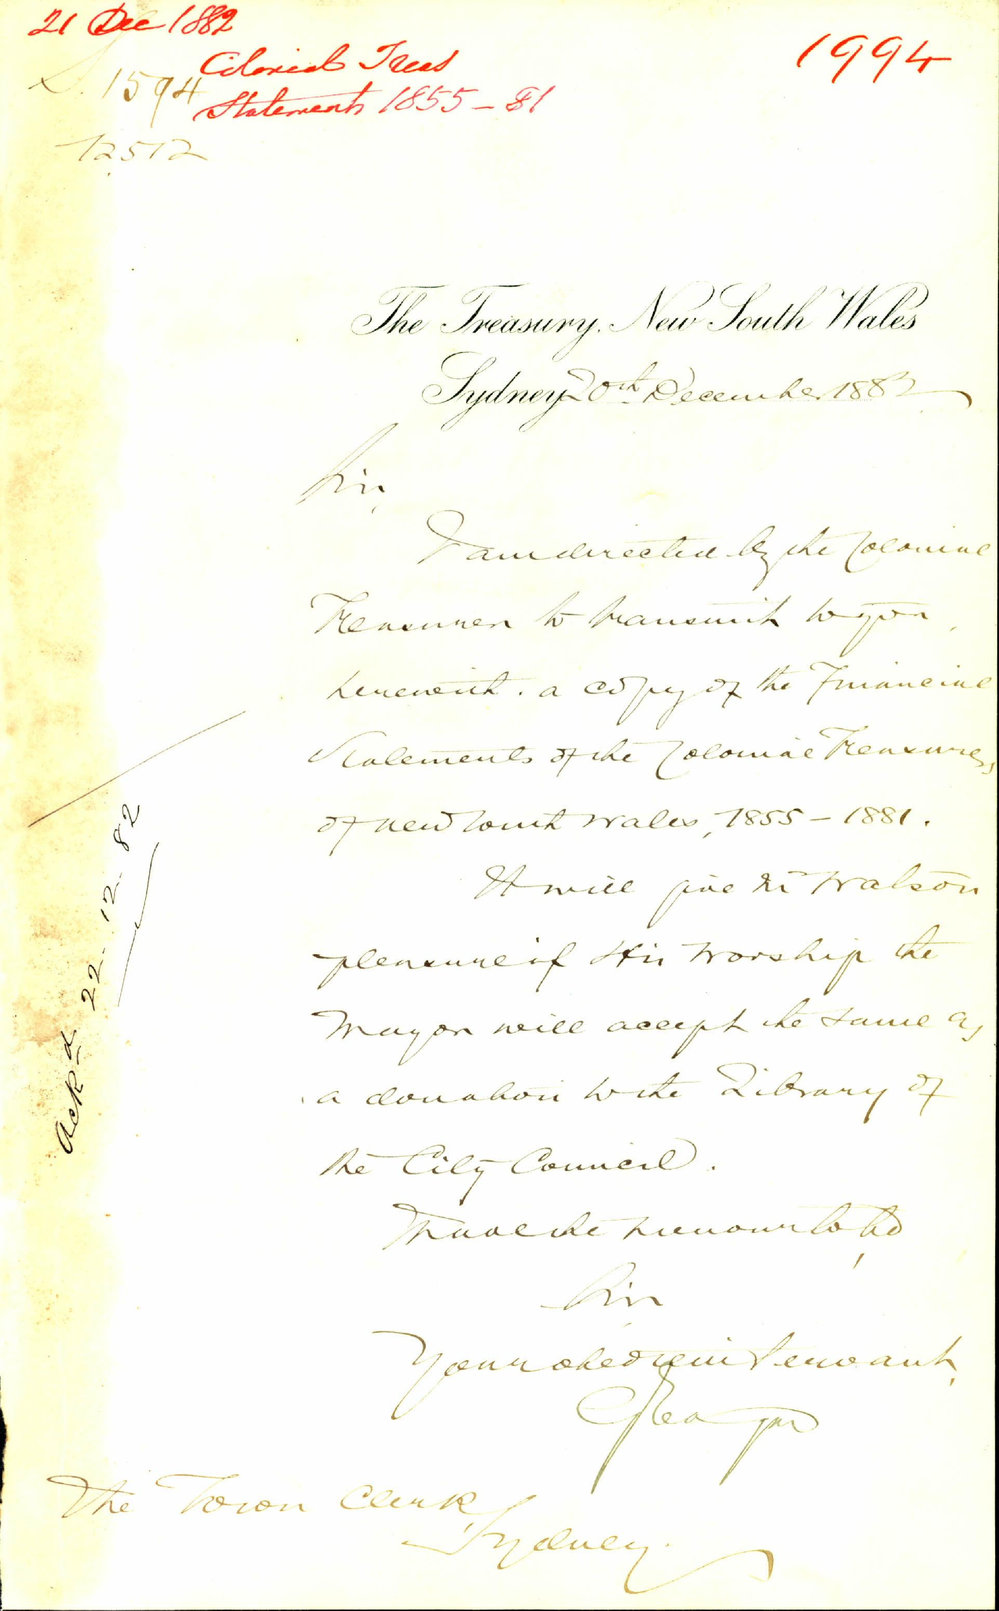 21 Dec 1882
Colonial Treas
Statements 1855-81
1994
1594
12512
The Treasury, New South Wales
Sydney 20th December 1882
Sir,
I am directed by the Colonial
Treasurer to transmit to you,
herewith, a copy of the Financial
Statements of the Colonial Treasurers
of New South Wales, 1855-1881.
It will give Mr Watson
pleasure if His Worship the
Mayor will accept the same as
a donation to the Library of
the City Council.
I have the honour to be
Sir
Your obedient Servant,
The Town Clerk,
Sydney.
Ackd 22.12.82